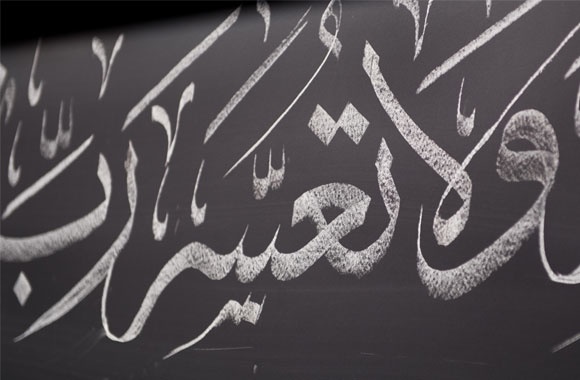 وَلَا تُعَسِّرْ رَبِّ